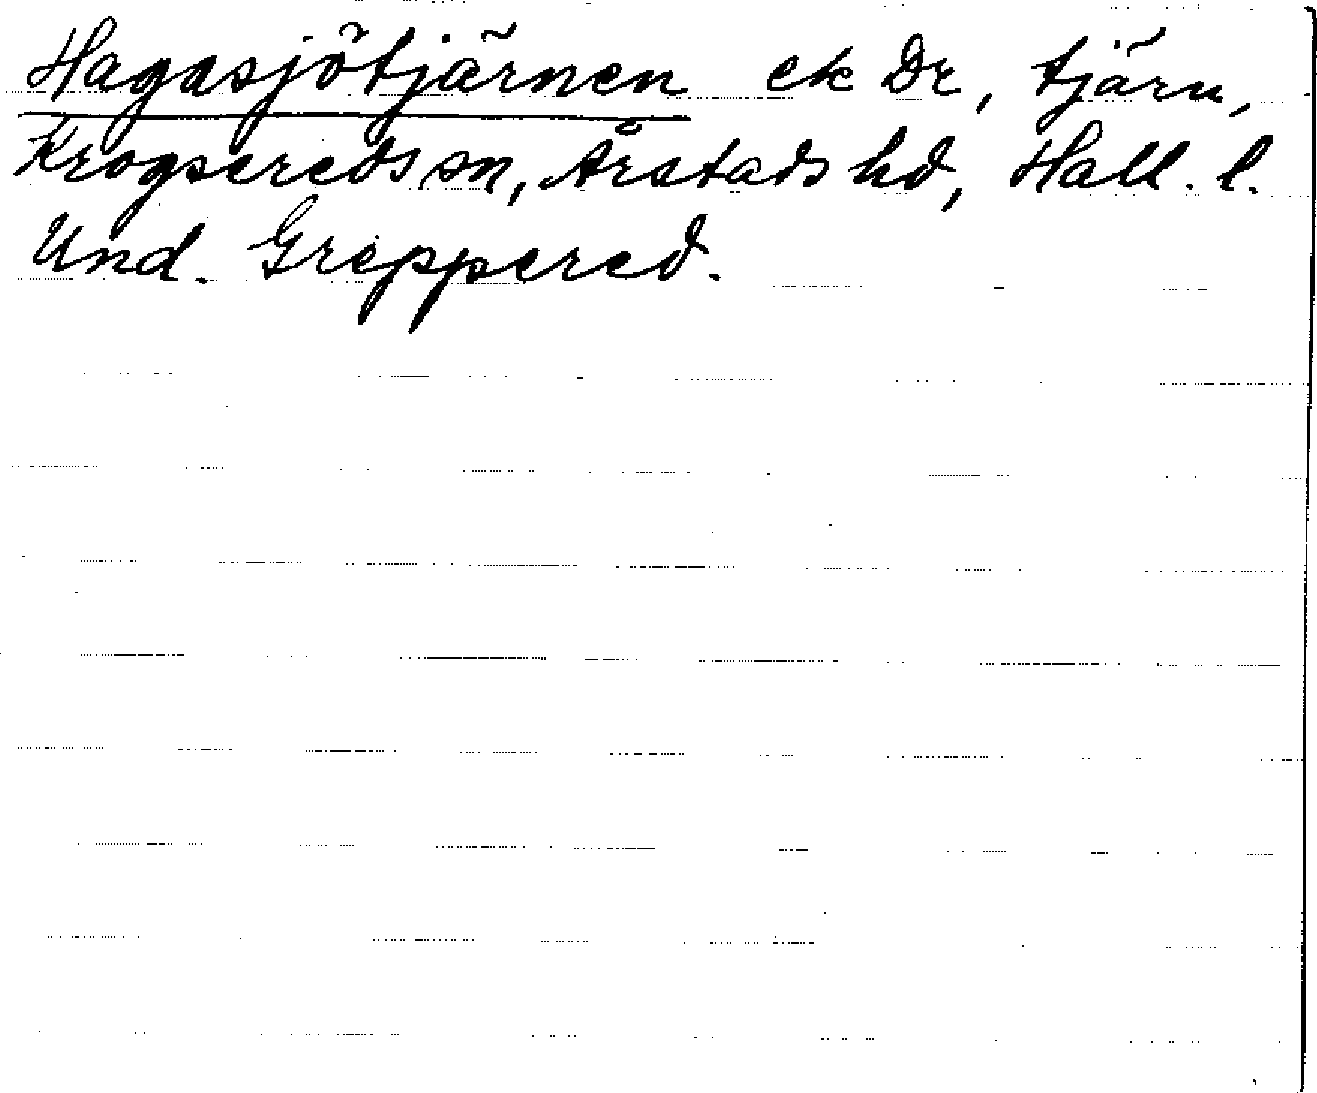 Hagasjötjärnen ek Dr, tjärn,
Krogsereds sn, Årstads hd, Hall. l.
Und. Greppered.